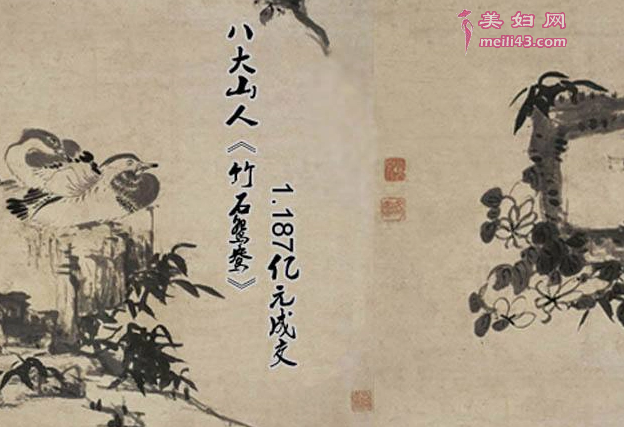 美妇网
meili43.com
八大山人《竹石鸳鸯》
1.187亿元成交